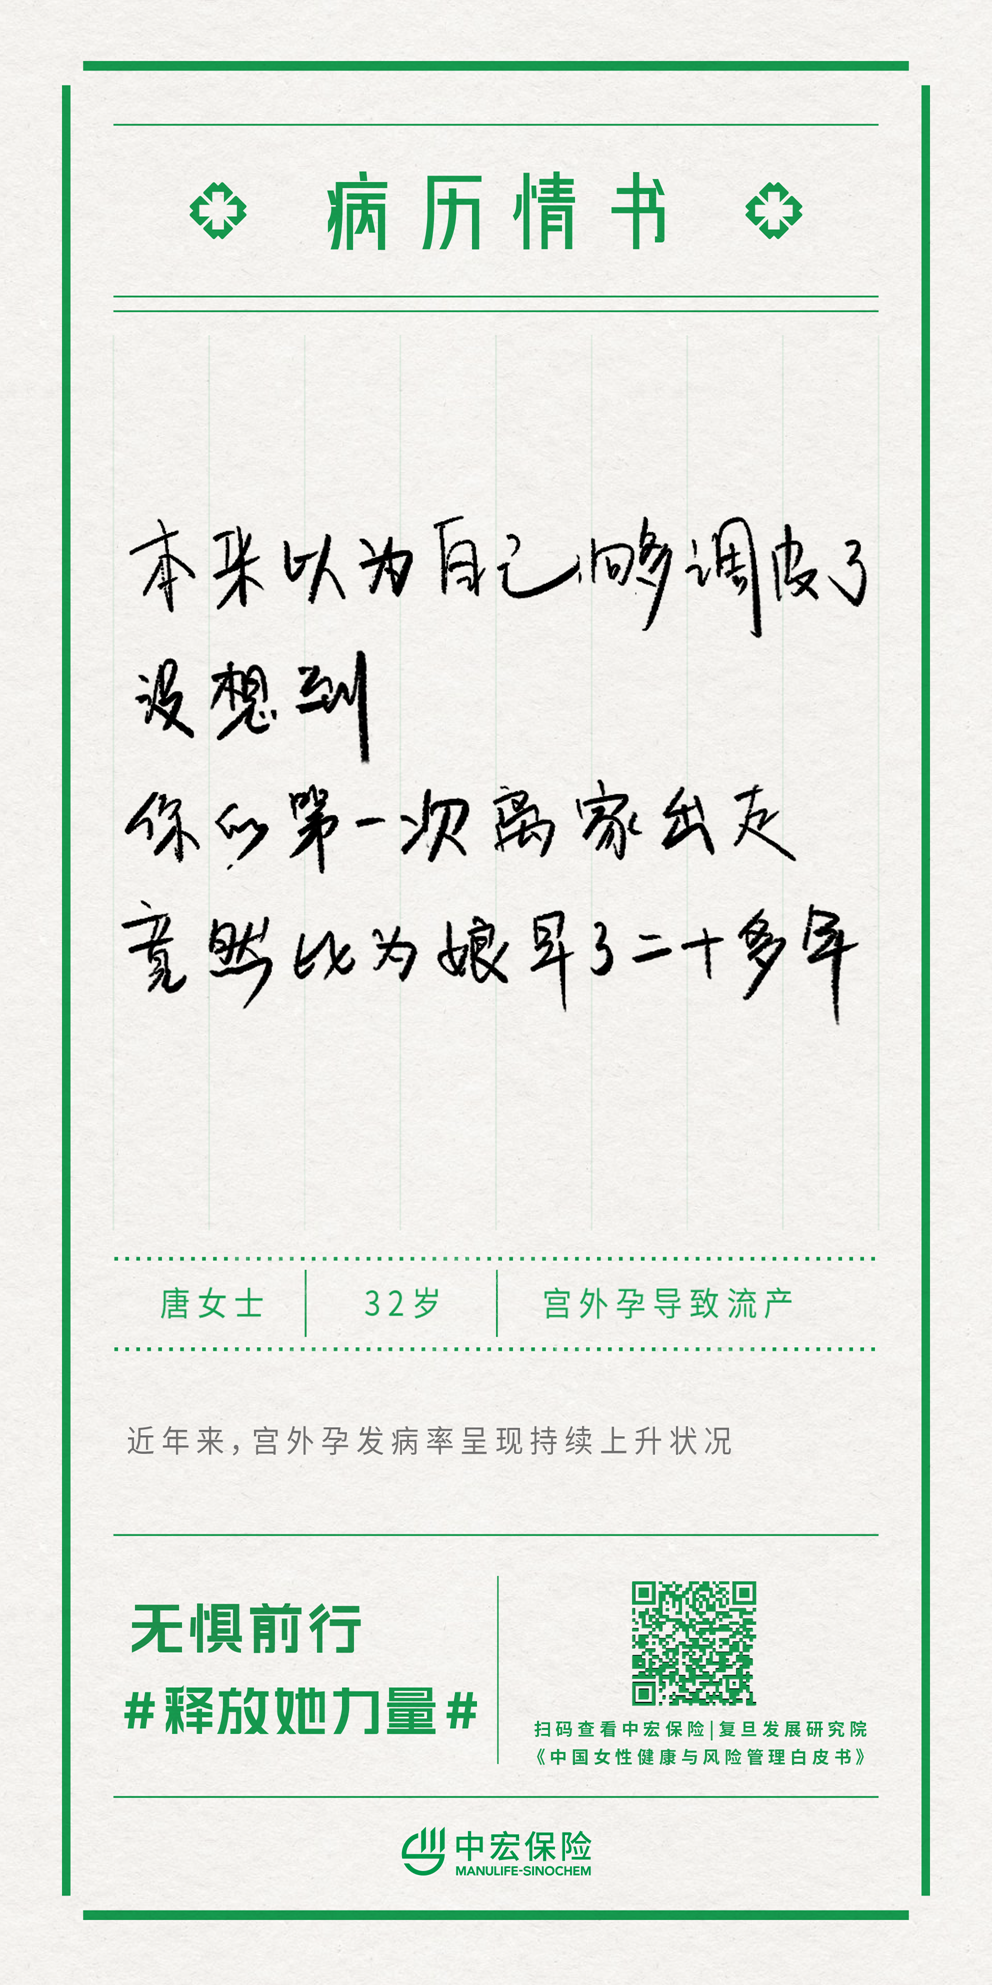 病历情书
本来以为自己够调皮了
没想到
你的第一次离家出走
竟然比为娘早了二十多年
唐女士 32岁 宫外孕导致流产
近年来，宫外孕发病率呈现持续上升状况
无惧前行
#释放她力量#
扫码查看中宏保险|复旦发展研究院
《中国女性健康与风险管理白皮书》
中宏保险
MANULIFE-SINOCHEM